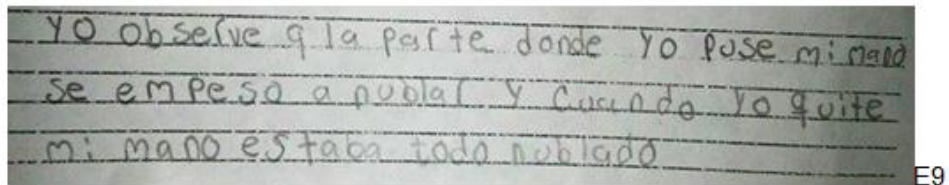 yo observe q la parte donde yo puse mi mano
se empeso a nublar y cuando yo quite
mi mano estaba todo nublado
E9